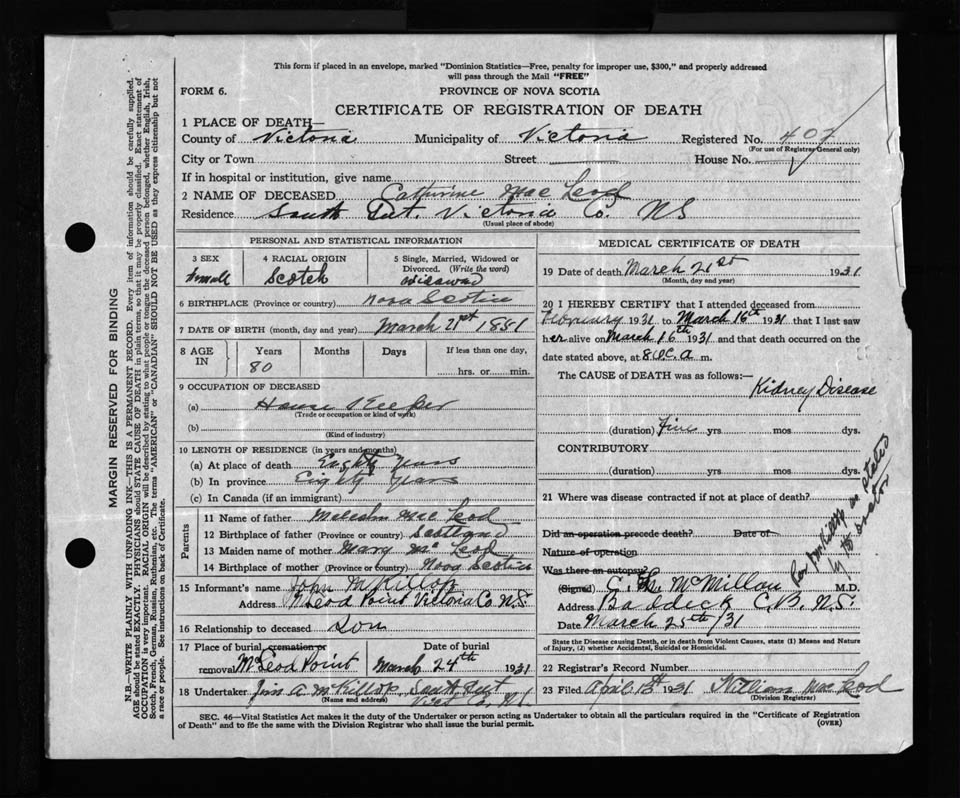 This form if placed in an envelope, marked "Dominion Statistics—Free, penalty for improper use, $300," and properly addressed
will pass through the Mail "FREE"
FORM 6. PROVINCE OF NOVA SCOTIA
CERTIFICATE OF REGISTRATION OF DEATH
1 PLACE OF DEATH—
County of Victoria Municipality of Victoria Registered No. 407
(For use of Registrar General only)
City or Town Street House No.
If in hospital or institution, give name
2 NAME OF DECEASED Catherine Mac Leod
Residence South Gut. Victoria Co. NS
(Usual place of abode)
PERSONAL AND STATISTICAL INFORMATION
3 SEX 4 RACIAL ORIGIN 5 Single, Married, Widowed or
Divorced. (Write the word)
Female Scotch
6 BIRTHPLACE (Province or country) Nova Scotia
7 DATE OF BIRTH (month, day and year) March 21st 1881
8 AGE IN Years Months Days If less than one day,
80 hrs. or min.
9 OCCUPATION OF DECEASED
(a) House Keeper
(Trade or occupation or kind of work)
(b)
(Kind of industry)
10 LENGTH OF RESIDENCE (in years and months)
(a) At place of death Eighty Years
(b) In province Eighty Years
(c) In Canada (if an immigrant)
Parents
11 Name of father Malcolm Mac Leod
12 Birthplace of father (Province or country) Scotland
13 Maiden name of mother Mary Mc Leod
14 Birthplace of mother (Province or country) Nova Scotia
15 Informant's name John McKillop
Address McLeod Point Victoria Co. N.S.
16 Relationship to deceased Son
17 Place of burial, cremation or Date of burial
removal McLeod Point March 24th 1931
18 Undertaker Jim A McKillop South Gut
(Name and address) Vict Co. N.S.
MEDICAL CERTIFICATE OF DEATH
19 Date of death March 21st 1931
(Month, day and year)
20 I HEREBY CERTIFY that I attended deceased from
1931 to March 16th 1931 that I last saw
her alive on March 16th 1931 and that death occurred on the
date stated above, at a m.
The CAUSE OF DEATH was as follows:—
Kidney Disease
(duration) Five yrs mos dys.
CONTRIBUTORY
(duration) yrs. mos dys.
21 Where was disease contracted if not at place of death?
Did an operation precede death? Date of
Nature of operation
Was there an autopsy?
(Signed) C. L. McMillan M.D.
Address Baddeck C.B. N.S.
Date March 25th/31
as stated
by the doctor
State the Disease causing Death, or in death from Violent Causes, state (1) Means and Nature
of Injury, (2) whether Accidental, Suicidal or Homicidal.
22 Registrar's Record Number
23 Filed April 13th 1931 William MacLeod
(Division Registrar)
SEC. 46—Vital Statistics Act makes it the duty of the Undertaker or person acting as Undertaker to obtain all the particulars required in the "Certificate of Registration
of Death" and to file the same with the Division Registrar who shall issue the burial permit. (OVER)
MARGIN RESERVED FOR BINDING
N.B.—WRITE PLAINLY WITH UNFADING INK—THIS IS A PERMANENT RECORD. Every item of information should be carefully supplied.
AGE should be stated EXACTLY. PHYSICIANS should STATE CAUSE OF DEATH in plain terms, so that it may be properly classified. Exact statement of
OCCUPATION is very important. RACIAL ORIGIN will be described by stating to what people or tongue the deceased person belonged, whether English, Irish,
Scotch, French, German, Russian, Ruthenian, etc. The terms "AMERICAN" or "CANADIAN" SHOULD NOT BE USED as they express citizenship but not
a race or people. See instructions on back of Certificate.